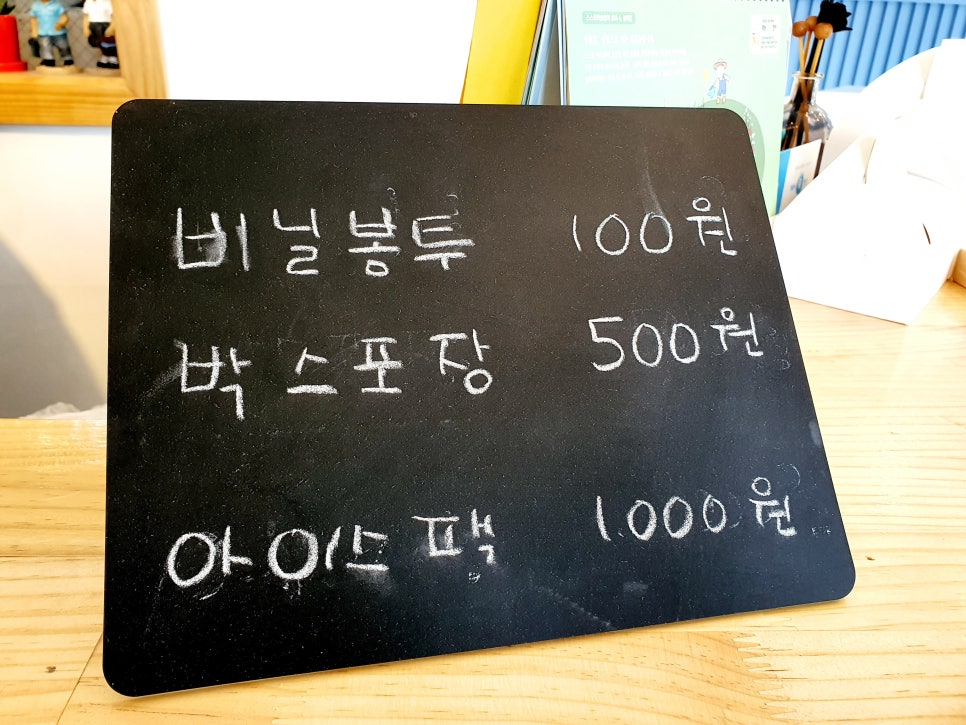 비닐봉투 100원
박스포장 500원
아이스팩 1,000원